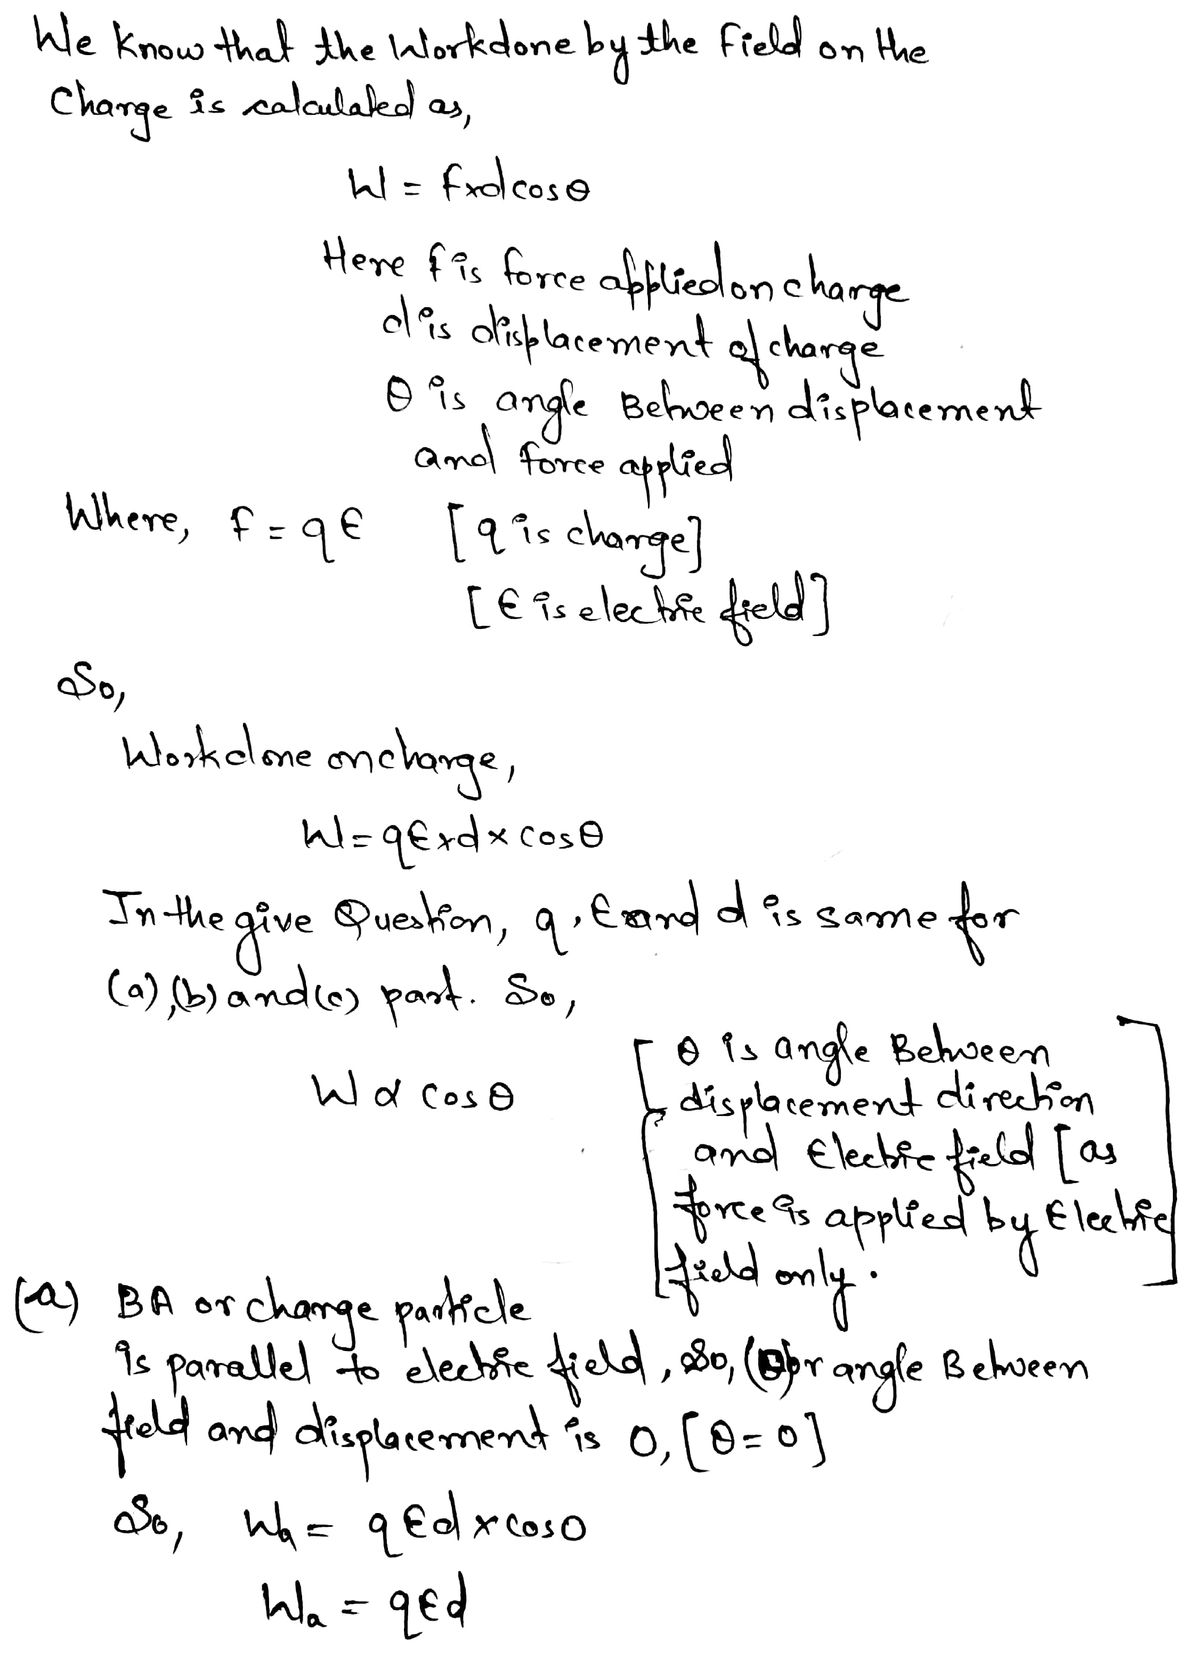 We know that the Workdone by the field on the
Charge is calculated as,
W = F×d cosθ
Here F is force applied on charge
d is displacement of charge
θ is angle Between displacement
and force applied
Where, F = qE [q is charge]
[E is electric field]
So,
Workdone on charge,
W = qE×d×cosθ
In the give Question, q, E and d is same for
(a),(b) and (c) part. So,
W α cosθ
[θ is angle Between
displacement direction
and Electric field [as
force is applied by Electric
field only.]
(a) BA or charge particle
is parallel to electric field, So, or angle Between
field and displacement is 0, [θ=0]
So, Wa = qEd×cos0
Wa = qEd